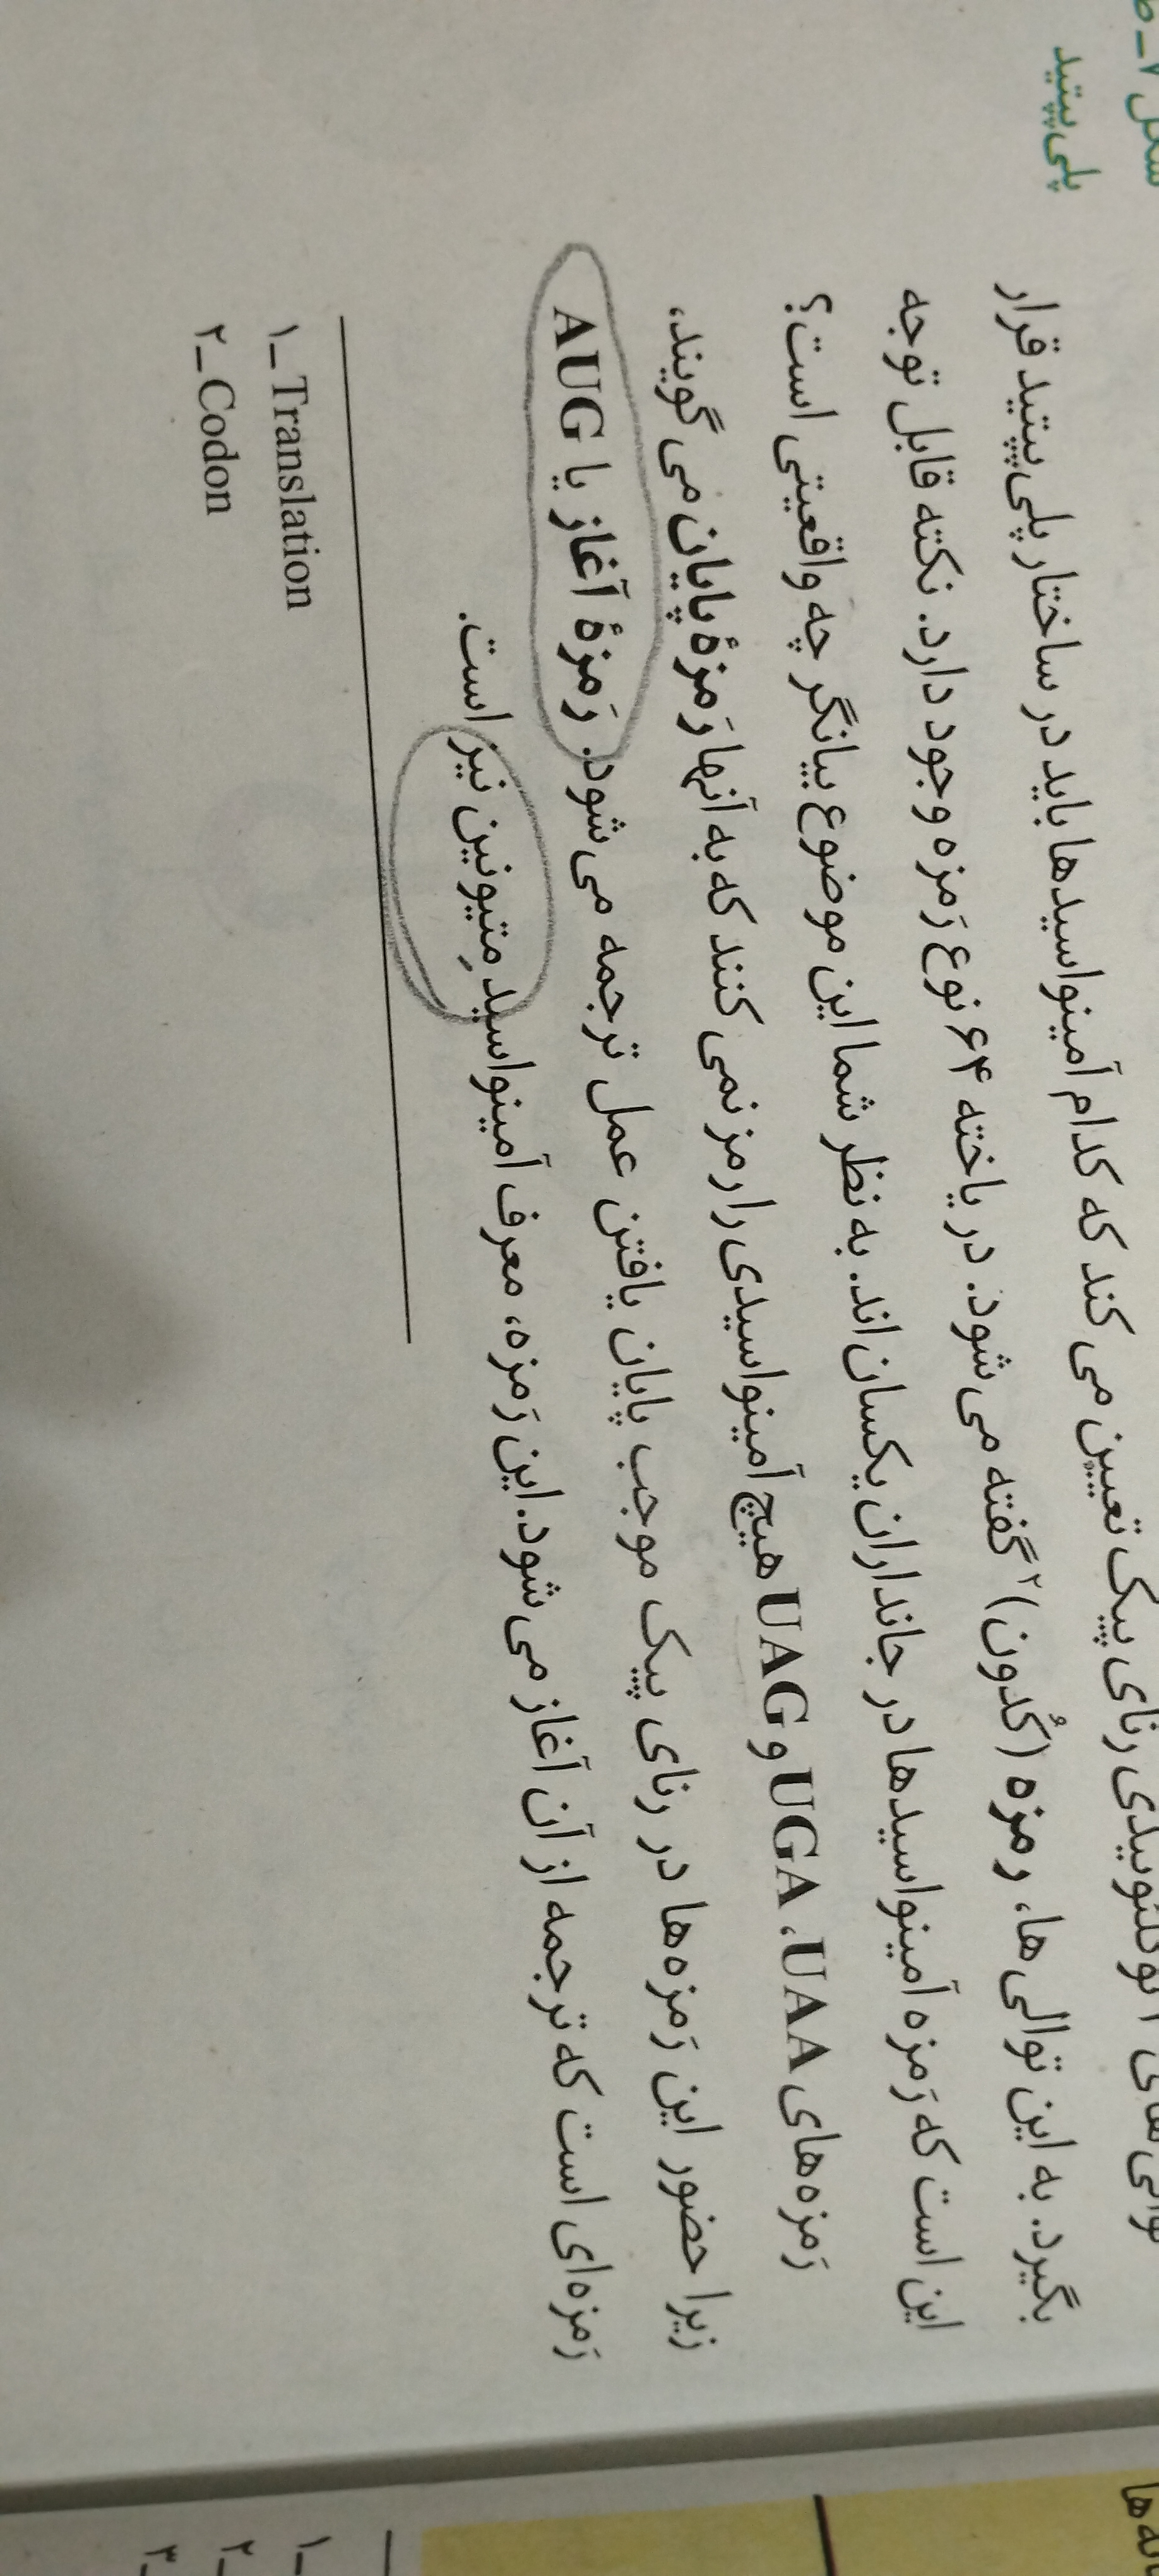 پلی پپتید
نوکلئوتیدی رنای پیک تعیین می کند که کدام آمینواسیدها باید در ساختار پلی پپتید قرار
بگیرد. به این توالی ها، رمزه (کُدون)۲ گفته می شود. در یاخته ۶۴ نوع رَمزه وجود دارد. نکته قابل توجه
این است که رَمزه آمینواسیدها در جانداران یکسان اند. به نظر شما این موضوع بیانگر چه واقعیتی است؟
رَمزه های UAA، UGA و UAG هیچ آمینواسیدی را رمز نمی کنند که به آنها رَمزهٔ پایان می گویند،
زیرا حضور این رَمزه ها در رنای پیک موجب پایان یافتن عمل ترجمه می شود. رَمزهٔ آغاز یا AUG
رَمزه ای است که ترجمه از آن آغاز می شود. این رَمزه، معرف آمینواسید مِتیونین نیز است.
۱_ Translation
۲_ Codon
۱_
۲_
۳_